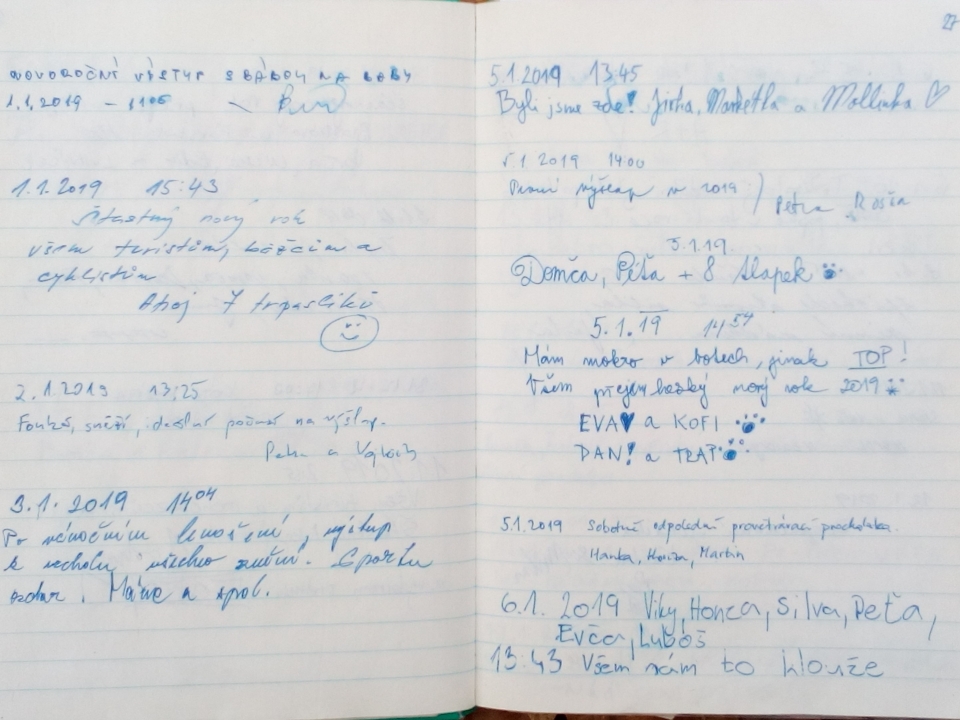 27
NOVOROČNÍ VÝSTUP S BÁBOU NA LOBY
1.1.2019 – 11 06
1.1.2019 15:43
Šťastný nový rok
všem turistům, běžcům a
cyklistům
Ahoj 7 trpaslíků
2.1.2019 13:25
Fouká, sněží, ideální počasí na výšlap.
a
3.1.2019 14 04
Po vánočním lenošení, výstup
k vrcholu všechno změní. Sportu
zdar. a spol.
5.1.2019 13:45
Byli jsme zde! Jirka, Markétka a Mollinka ♡
5.1.2019 14:00
První výšlap v 2019 / Petra
5.1.19
Domča, Péťa + 8 tlapek
5.1.19 14 54
Mám mokro v botech, jinak TOP!
Všem přeju hezký nový rok 2019
EVA♥ a KOFI
DAN! a TRAP
5.1.2019 Sobotní odpolední provětrávací procházka.
Hanka, Honza, Martin
6.1. 2019 Viky, Honza, Silva, Peťa,
Evča, Luboš
13:43 Všem nám to klouže